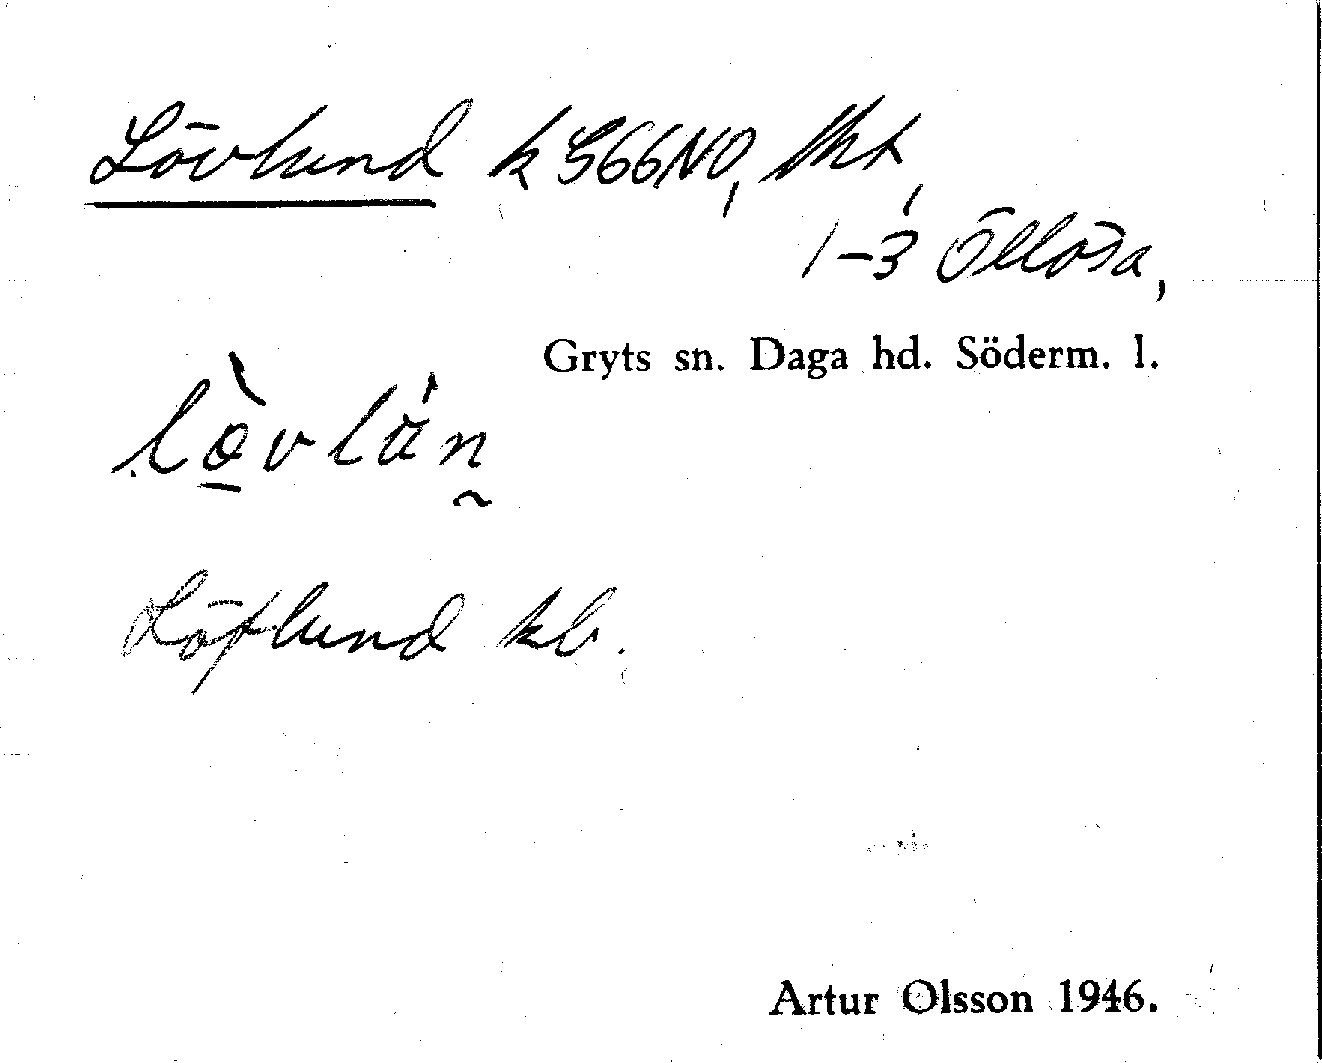 Lövlund k G66NO, lht,
1-3 Öllösa,
Gryts sn. Daga hd. Söderm. l.
lövlun
Löflund kb.
Artur Olsson 1946.